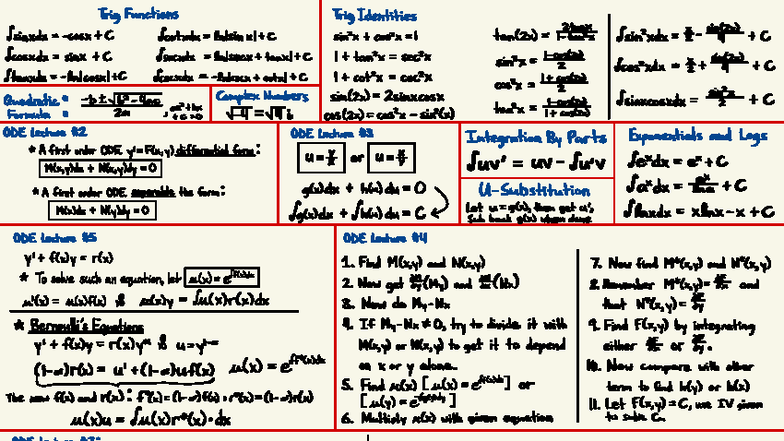 Trig Functions
∫sinxdx = -cosx + C
∫cosxdx = sinx + C
∫tanxdx = -ln|cosx| + C
∫cotxdx = ln|sinx| + C
∫secxdx = ln|secx + tanx| + C
∫cscxdx = -ln|cscx + cotx| + C
Trig Identities
sin²x + cos²x = 1
1 + tan²x = sec²x
1 + cot²x = csc²x
sin(2x) = 2sinxcosx
cos(2x) = cos²x - sin²(x)
tan(2x) = 2tanx/1-tan²x
sin²x = 1-cos(2x)/2
cos²x = 1+cos(2x)/2
tan²x = 1-cos(2x)/1+cos(2x)
∫sin²xdx = x/2 - sin(2x)/4 + C
∫cos²xdx = x/2 + sin(2x)/4 + C
∫sinxcosxdx = sin²x/2 + C
Quadratic Formula : -b±√b²-4ac/2a , ax²+bx+c=0
Complex Numbers
ODE Lecture #2
* A first order ODE y'=F(x,y) differential form:
M(x,y)dx + N(x,y)dy = 0
* A first order ODE separable the form:
M(x)dx + N(y)dy = 0
ODE Lecture #3
or
g(x)dx + h(u)du = 0
∫g(x)dx + ∫h(u)du = C
Integration By Parts
∫uv' = uv - ∫u'v
U-Substitution
Let u=g(x), then get u',
Sub back g(x) when done
Exponentials and Logs
∫eˣdx = eˣ + C
∫aˣdx = aˣ/lna + C
∫lnxdx = xlnx - x + C
ODE Lecture #5
y' + f(x)y = r(x)
* To solve such an equation, let μ(x) = e^∫f(x)dx
μ'(x) = μ(x)f(x) & μ(x)y = ∫μ(x)r(x)dx
* Bernoulli's Equations
y' + f(x)y = r(x)yⁿ & u=y¹⁻ⁿ
(1-n)r(x) = u' + (1-n)uf(x) μ(x) = e^∫f*(x)dx
The new f(x) and r(x): f*(x)=(1-n)f(x), r*(x)=(1-n)r(x)
μ(x)u = ∫μ(x)r*(x)·dx
ODE Lecture #4
1. Find M(x,y) and N(x,y)
2. Now get ∂/∂y(My) and ∂/∂x(Nx)
3. Now do My-Nx
4. If My-Nx ≠ 0, try to divide it with
M(x,y) or N(x,y) to get it to depend
on x or y alone.
5. Find or
6. Multiply with given equation
7. Now find M*(x,y) and N*(x,y)
8. Remember M*(x,y)= ∂F/∂x and
that N*(x,y)= ∂F/∂y
9. Find F(x,y) by integrating
either ∂F/∂x or ∂F/∂y.
10. Now compare with other
term to find h(y) or h(x)
11. Let F(x,y)=C, use IV given
to solve C.